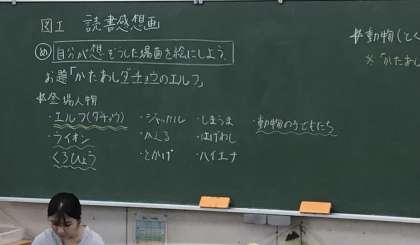 図工 読書感想画
め 自分が想ぞうした場画を絵にしよう。
お題「かたあしダチョウのエルフ」
*登場人物
・エルフ(ダチョウ) ・ジャッカル ・しまうま ・動物の子どもたち
・ライオン ・はげわし
・くろひょう ・とかげ ・ハイエナ
*動物(とく
※「かたあし